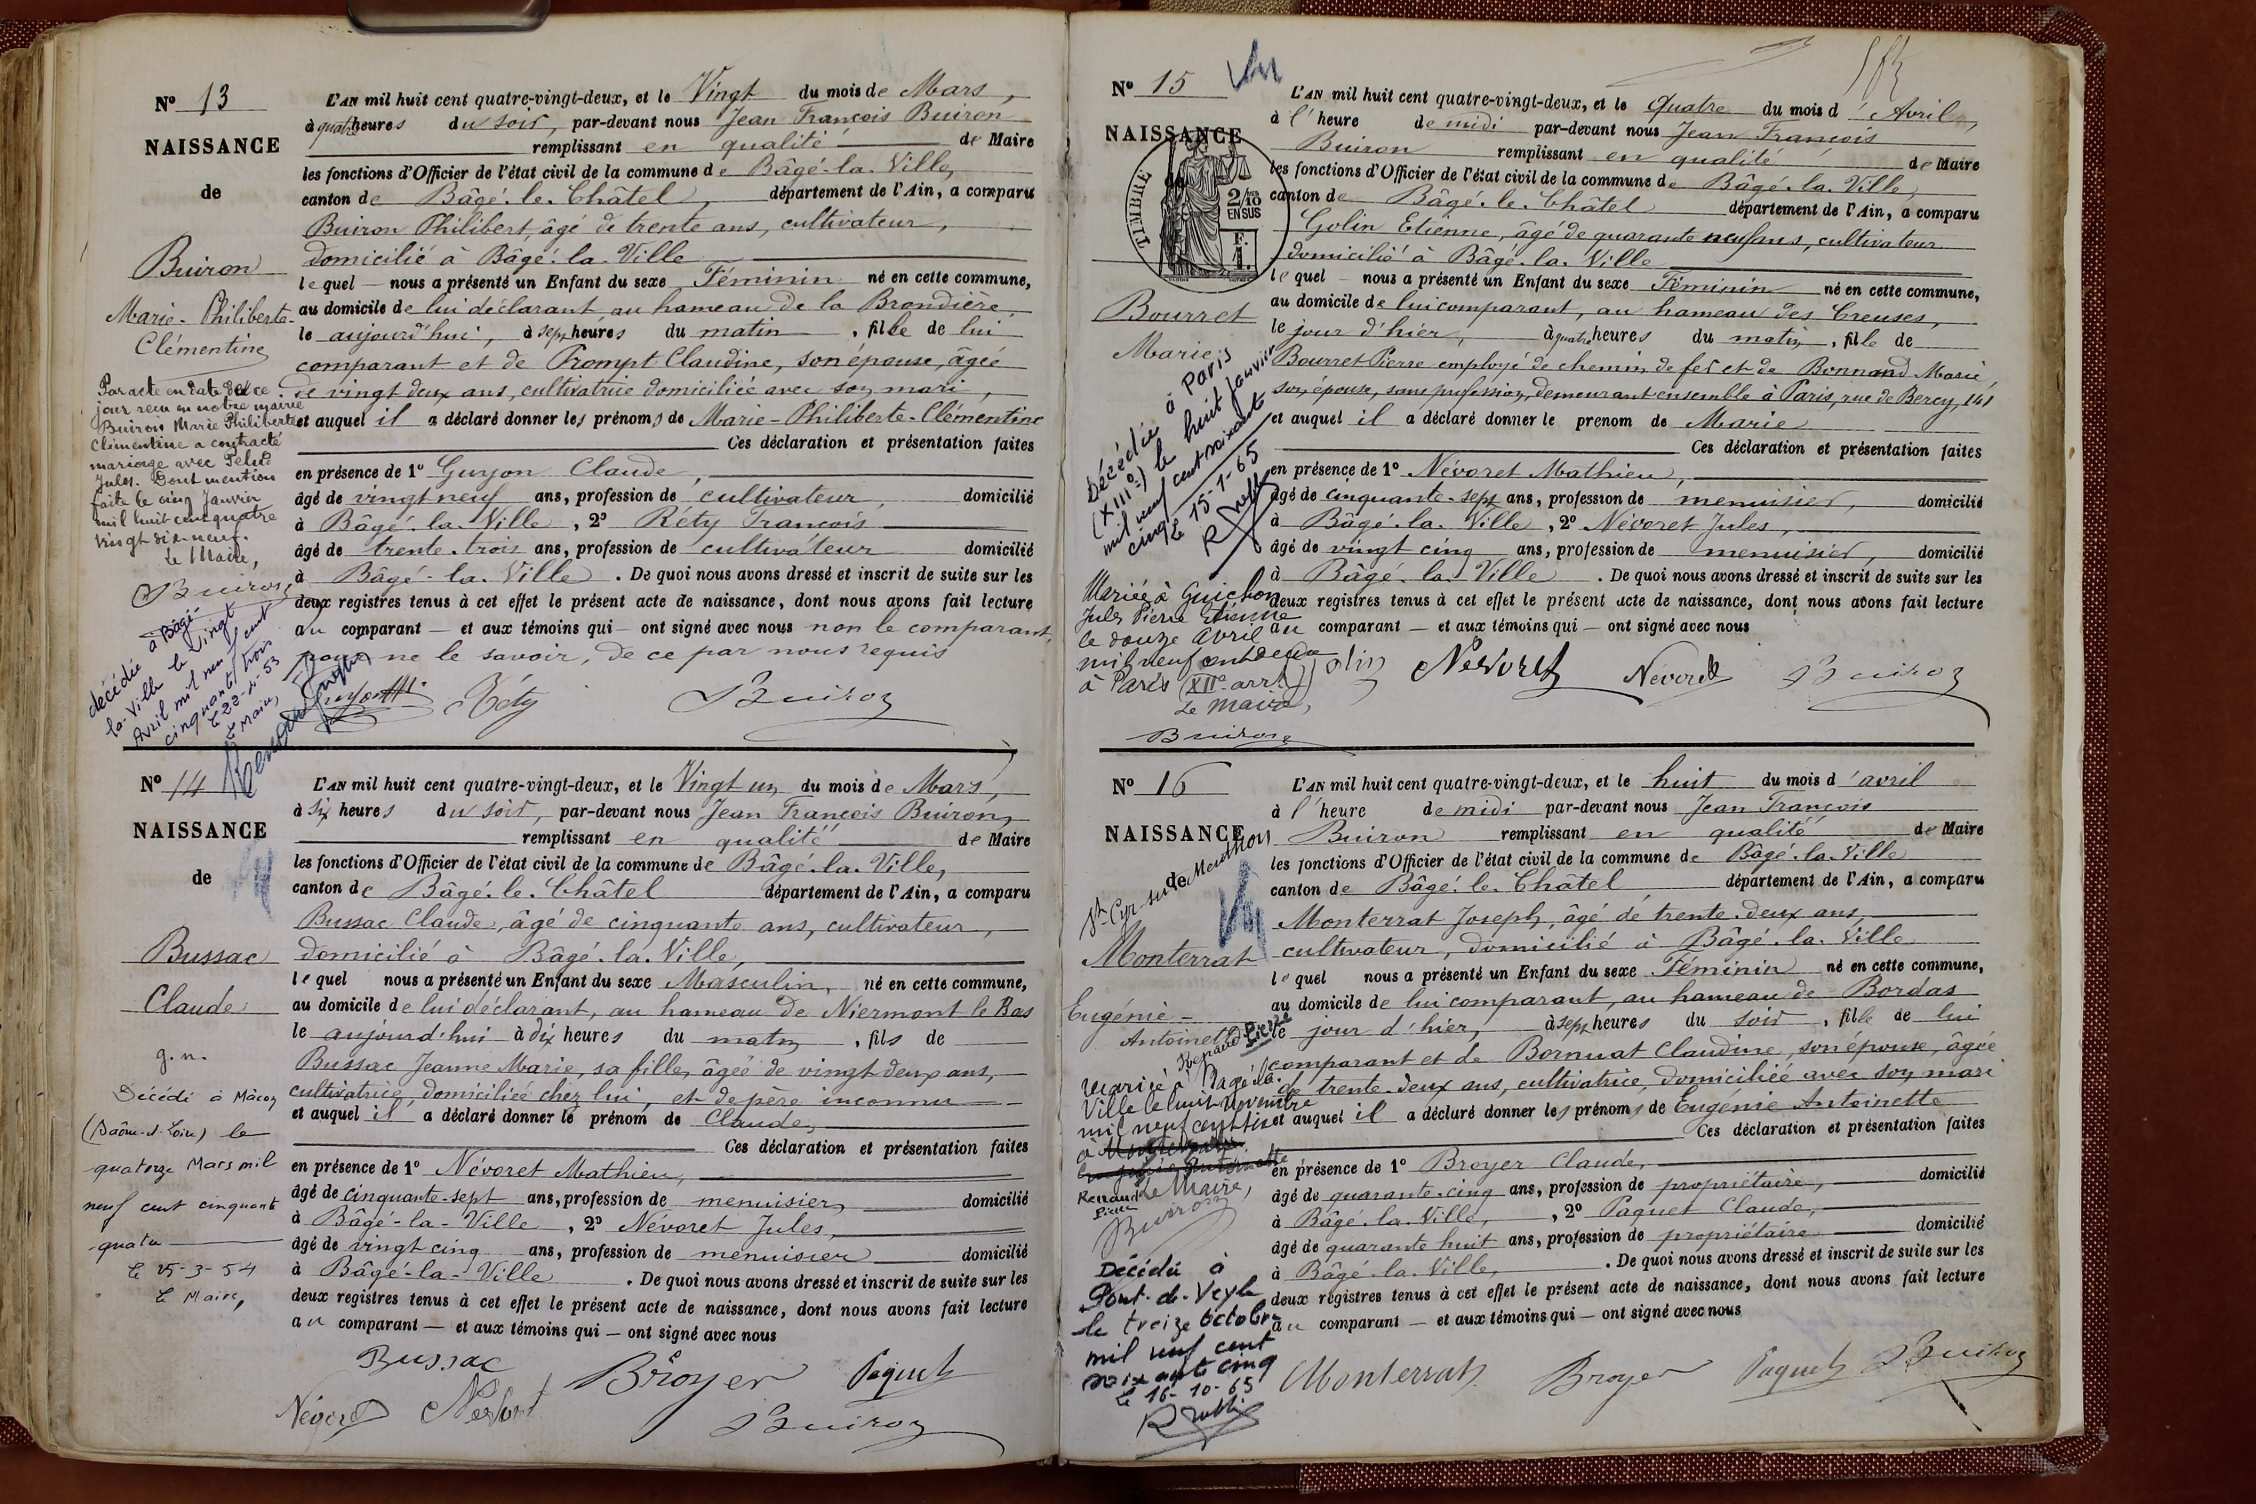 Nº 13
NAISSANCE
de
Buiron
Marie-Philiberte-
Clémentine
Par acte en date de ce
jour reçu en notre mairie
Buiron Marie Philiberte
Clémentine a contracté
mariage avec
Jules. Dont mention
faite le cinq Janvier
mil huit cent quatre
vingt dix-neuf.
Le Maire,
Buiron
décédée à Bâgé
la-Ville le vingt
Avril mil neuf cent
cinquante trois
Le 22-4-53
Le Maire,
L'AN mil huit cent quatre-vingt-deux, et le Vingt du mois de Mars,
à quatre heures du soir, par-devant nous Jean François Buiron
remplissant en qualité de Maire
les fonctions d'Officier de l'état civil de la commune de Bâgé-la-Ville,
canton de Bâgé-le-Châtel, département de l'Ain, a comparu
Buiron Philibert, âgé de trente ans, cultivateur,
domicilié à Bâgé-la-Ville
lequel nous a présenté un Enfant du sexe Féminin né en cette commune,
au domicile de lui déclarant, au hameau de la Brondière,
le aujourd'hui, à sept heures du matin, fille de lui
comparant et de Prompt Claudine, son épouse, âgée
de vingt deux ans, cultivatrice domiciliée avec son mari,
et auquel il a déclaré donner les prénoms de Marie-Philiberte-Clémentine
Ces déclaration et présentation faites
en présence de 1º Guyon Claude,
âgé de vingt neuf ans, profession de cultivateur, domicilié
à Bâgé-la-Ville, 2º Réty François
âgé de trente-trois ans, profession de cultivateur domicilié
à Bâgé-la-Ville. De quoi nous avons dressé et inscrit de suite sur les
deux registres tenus à cet effet le présent acte de naissance, dont nous avons fait lecture
au comparant — et aux témoins qui — ont signé avec nous non le comparant,
pour ne le savoir, de ce par nous requis
Réty Buiron
Nº 14
NAISSANCE
de
Bussac
Claude
g. n.
Décédé à Mâcon
(Saône-&-Loire) le
quatorze Mars mil
neuf cent cinquante
quatre
Le 15-3-54
Le Maire,
L'AN mil huit cent quatre-vingt-deux, et le Vingt un du mois de Mars,
à six heures du soir, par-devant nous Jean François Buiron,
remplissant en qualité de Maire
les fonctions d'Officier de l'état civil de la commune de Bâgé-la-Ville,
canton de Bâgé-le-Châtel département de l'Ain, a comparu
Bussac Claude, âgé de cinquante ans, cultivateur,
domicilié à Bâgé-la-Ville,
lequel nous a présenté un Enfant du sexe Masculin, né en cette commune,
au domicile de lui déclarant, au hameau de Niermont le Bas
le aujourd'hui à dix heures du matin, fils de
Bussac Jeanne Marie, sa fille, âgée de vingt deux ans,
cultivatrice, domiciliée chez lui, et de père inconnu
et auquel il a déclaré donner le prénom de Claude,
Ces déclaration et présentation faites
en présence de 1º Névoret Mathieu,
âgé de cinquante-sept ans, profession de menuisier, domicilié
à Bâgé-la-Ville, 2º Névoret Jules,
âgé de vingt cinq ans, profession de menuisier domicilié
à Bâgé-la-Ville. De quoi nous avons dressé et inscrit de suite sur les
deux registres tenus à cet effet le présent acte de naissance, dont nous avons fait lecture
au comparant — et aux témoins qui — ont signé avec nous
Bussac Broyer Paquet
Névoret Névoret Buiron
Nº 15
NAISSANCE
TIMBRE
2/10
EN SUS
F.
1.
Bourret
Marie
Décédée à Paris
(XIIIº) le huit janvier
mil neuf cent soixante
cinq
Le 15-1-65
Mariée à Guichon
Jules Pierre Etienne
le douze avril
mil neuf cent deux
à Paris (XIIe arrt)
Le Maire,
Buiron
L'AN mil huit cent quatre-vingt-deux, et le Quatre du mois d'Avril,
à l'heure de midi par-devant nous Jean François
Buiron remplissant en qualité de Maire
les fonctions d'Officier de l'état civil de la commune de Bâgé-la-Ville,
canton de Bâgé-le-Châtel département de l'Ain, a comparu
Golin Etienne, âgé de quarante neuf ans, cultivateur
domicilié à Bâgé-la-Ville
lequel nous a présenté un Enfant du sexe Féminin né en cette commune,
au domicile de lui comparant, au hameau des Creuses,
le jour d'hier, à quatre heures du matin, fille de
Bourret Pierre employé de chemin de fer et de Bonnand Marie,
son épouse, sans profession, demeurant ensemble à Paris, rue de Bercy, 141
et auquel il a déclaré donner le prenom de Marie
Ces déclaration et présentation faites
en présence de 1º Névoret Mathieu,
âgé de cinquante-sept ans, profession de menuisier, domicilié
à Bâgé-la-Ville, 2º Névoret Jules,
âgé de vingt cinq ans, profession de menuisier, domicilié
à Bâgé-la-Ville. De quoi nous avons dressé et inscrit de suite sur les
deux registres tenus à cet effet le présent acte de naissance, dont nous avons fait lecture
au comparant — et aux témoins qui — ont signé avec nous
Golin Névoret Névoret Buiron
Nº 16
NAISSANCE
de
St Cyr sur Menthon
Monterrat
Eugénie-
Antoinette
Renaud Pierre
Mariée à Bagé-la-
Ville le huit Novembre
mil neuf cent six
à
Renaud
Pierre
Le Maire,
Buiron
Décédée à
Pont-de-Veyle
le treize octobre
mil neuf cent
soixante cinq
Le 16-10-65
L'AN mil huit cent quatre-vingt-deux, et le huit du mois d'avril
à l'heure de midi par-devant nous Jean François
Buiron remplissant en qualité de Maire
les fonctions d'Officier de l'état civil de la commune de Bâgé-la-Ville
canton de Bâgé-le-Châtel département de l'Ain, a comparu
Monterrat Joseph, âgé de trente-deux ans,
cultivateur, domicilié à Bâgé-la-Ville
lequel nous a présenté un Enfant du sexe Féminin né en cette commune,
au domicile de lui comparant, au hameau de Bordas
le jour d'hier, à sept heures du soir, fille de lui
comparant et de Bornuat Claudine, son épouse, âgée
de trente-deux ans, cultivatrice, domiciliée avec son mari
et auquel il a déclaré donner les prénoms de Eugénie Antoinette
Ces déclaration et présentation faites
en présence de 1º Broyer Claude,
âgé de quarante-cinq ans, profession de propriétaire, domicilié
à Bâgé-la-Ville, 2º Paquet Claude,
âgé de quarante huit ans, profession de propriétaire domicilié
à Bâgé-la-Ville, . De quoi nous avons dressé et inscrit de suite sur les
deux registres tenus à cet effet le présent acte de naissance, dont nous avons fait lecture
au comparant — et aux témoins qui — ont signé avec nous
Monterrat Broyer Paquet Buiron